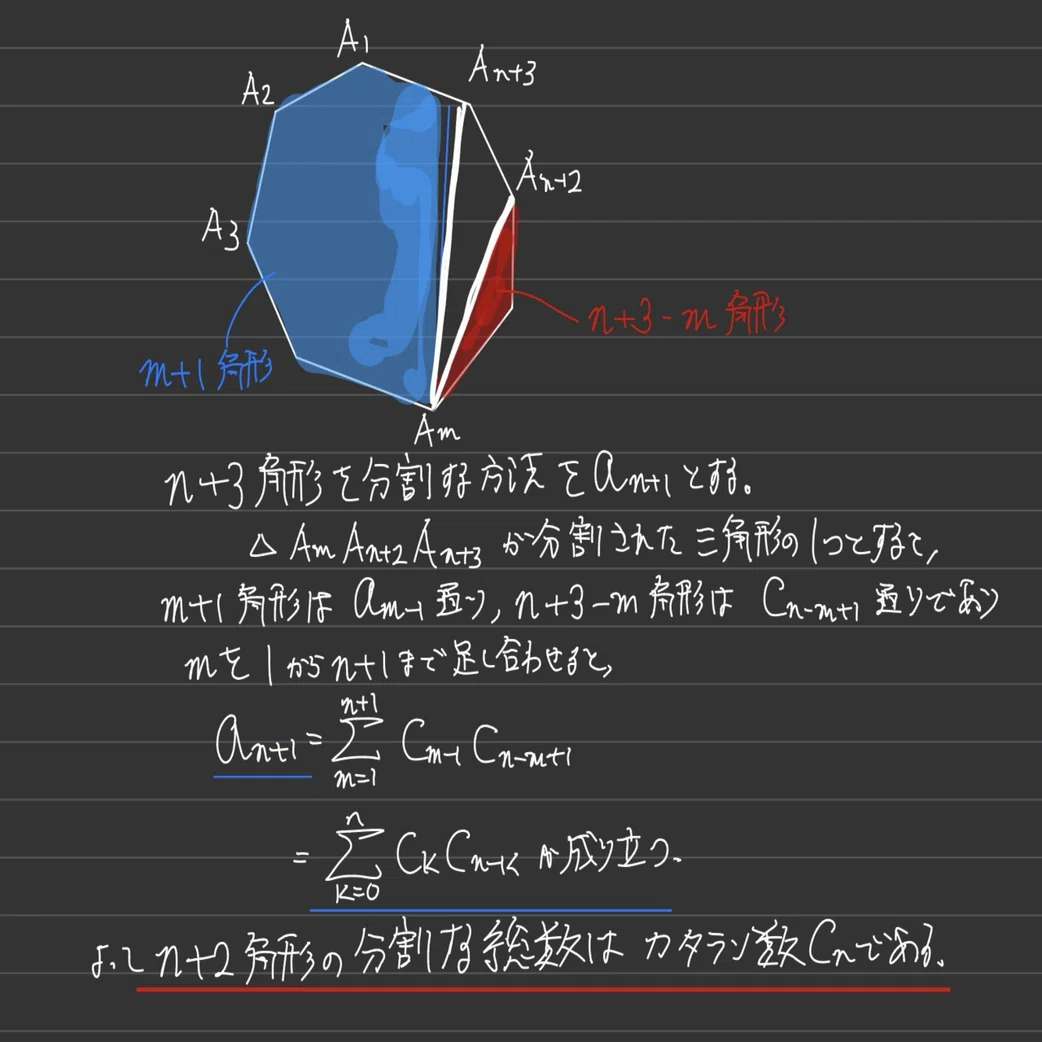 A1
An+3
A2
An+2
A3
n+3-m 角形
m+1 角形
Am
n+3 角形を分割する方法を an+1 とする。
△ Am An+2 An+3 が分割された三角形の1つとすると,
m+1 角形は am-1 通り, n+3-m 角形は Cn-m+1 通りであり
mを 1 から n+1 まで足し合わせると,
an+1 = Σ[m=1→n+1] Cm-1 Cn-m+1
= Σ[k=0→n] Ck Cn-k が成り立つ.
よって n+2 角形の分割する総数は カタラン数 Cn である.